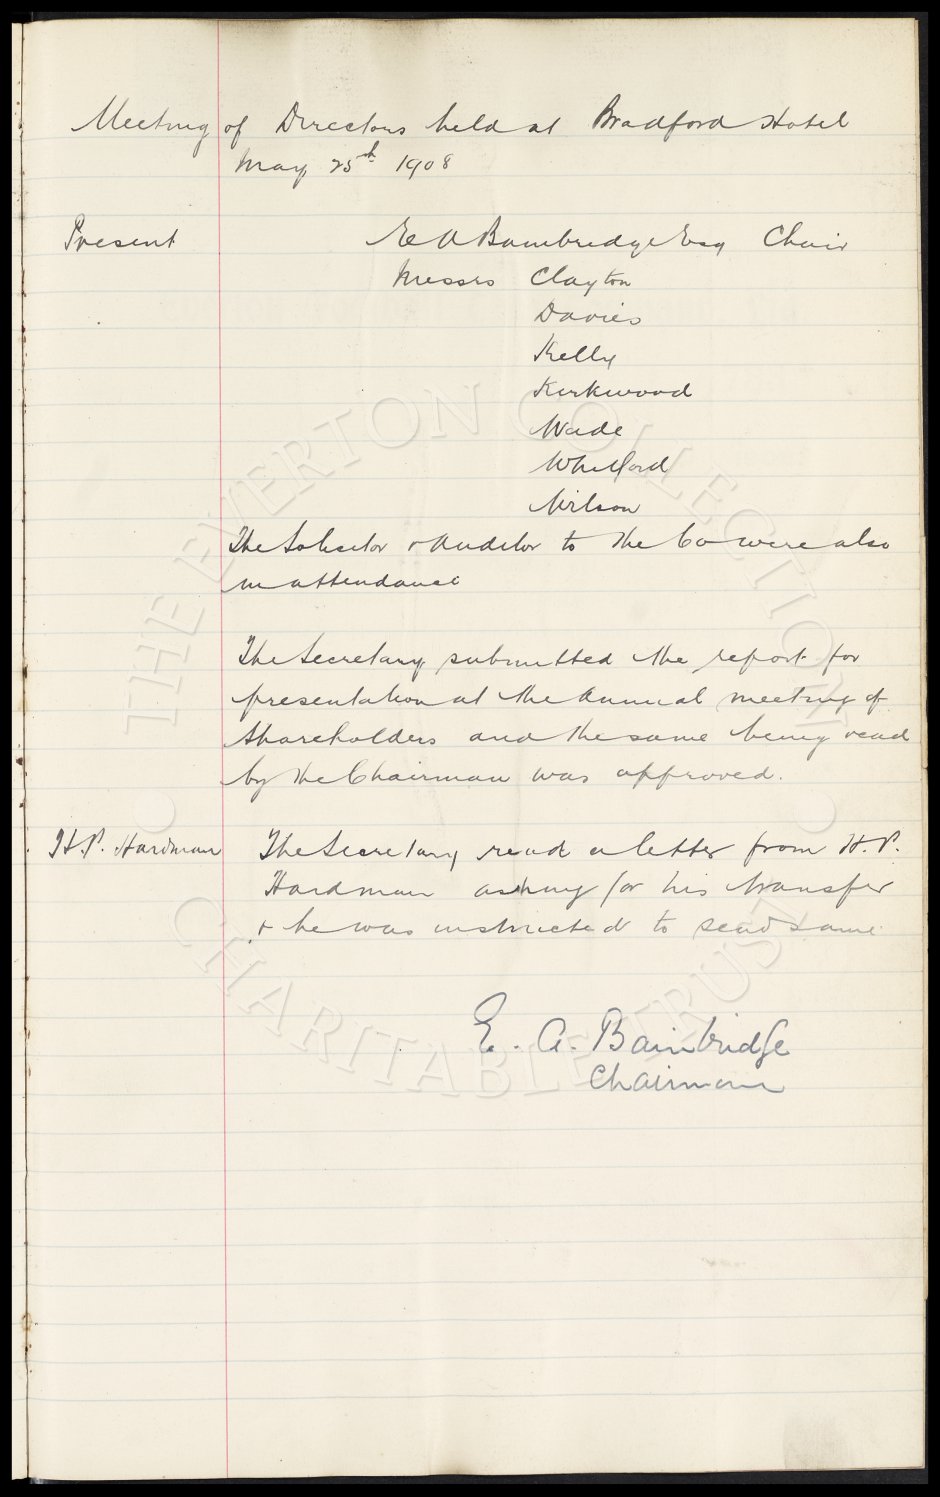 Meeting of Directors held at Bradford Hotel
May 25th 1908
Present E A Bainbridge Esq Chair
Messrs Clayton
Davies
Kelly
Kirkwood
Wade
Whitford
Wilson
The Solicitor & Auditor to the Co were also
in attendance
The Secretary submitted the report for
presentation at the Annual meeting of
Shareholders and the same being read
by the Chairman was approved.
H.P. Hardman The Secretary read a letter from H.P.
Hardman asking for his transfer
& he was instructed to send same
E. A. Bainbridge
Chairman
THE EVERTON COLLECTION
CHARITABLE TRUST